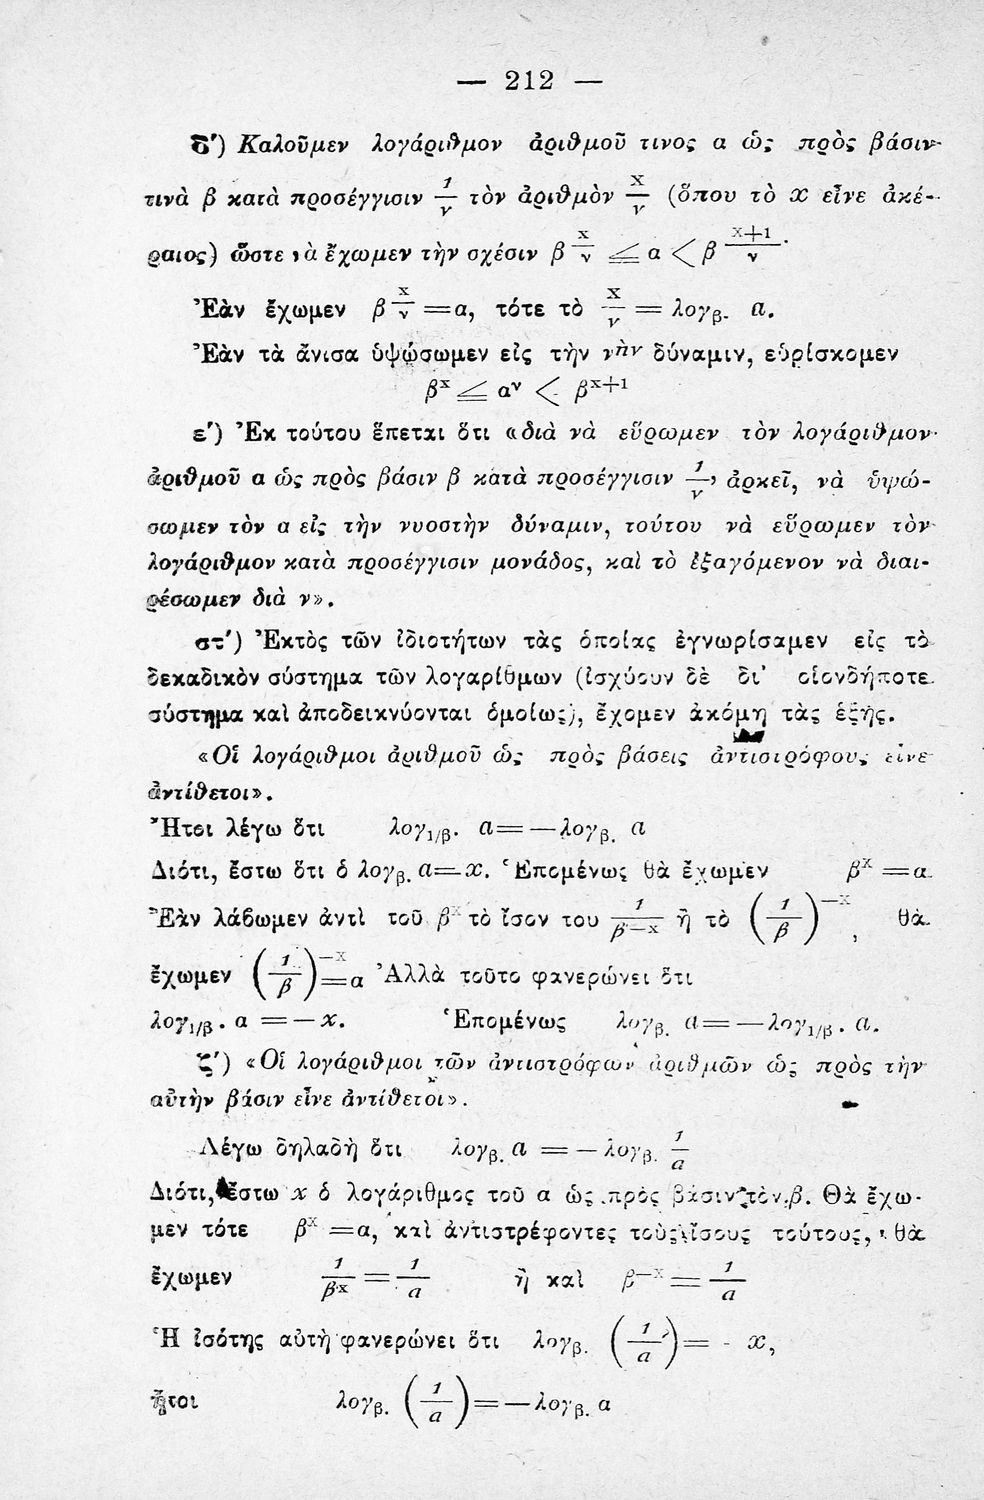 — 212 —
δ′) Καλοῦμεν λογάριθμον ἀριθμοῦ τινος α ὡς πρὸς βάσιν
τινὰ β κατὰ προσέγγισιν 1/ν τὸν ἀριθμὸν x/ν (ὅπου τὸ x εἶνε ἀκέ-
ραιος) ὥστε νὰ ἔχωμεν τὴν σχέσιν β^(x/ν) ≤ α < β^((x+1)/ν).
Ἐὰν ἔχωμεν β^(x/ν) = α, τότε τὸ x/ν = λογβ. α.
Ἐὰν τὰ ἄνισα ὑψώσωμεν εἰς τὴν νὴν δύναμιν, εὑρίσκομεν
β^x ≤ α^ν < β^(x+1)
ε′) Ἐκ τούτου ἕπεται ὅτι «διὰ νὰ εὕρωμεν τὸν λογάριθμον
ἀριθμοῦ α ὡς πρὸς βάσιν β κατὰ προσέγγισιν 1/ν, ἀρκεῖ, νὰ ὑψώ-
σωμεν τὸν α εἰς τὴν νυοστὴν δύναμιν, τούτου νὰ εὕρωμεν τὸν
λογάριθμον κατὰ προσέγγισιν μονάδος, καὶ τὸ ἐξαγόμενον νὰ διαι-
ρέσωμεν διὰ ν».
στ′) Ἐκτὸς τῶν ἰδιοτήτων τὰς ὁποίας ἐγνωρίσαμεν εἰς τὸ
δεκαδικὸν σύστημα τῶν λογαρίθμων (ἰσχύουν δὲ δι' οἱονδήποτε
σύστημα καὶ ἀποδεικνύονται ὁμοίως), ἔχομεν ἀκόμη τὰς ἑξῆς.
«Οἱ λογάριθμοι ἀριθμοῦ ὡς πρὸς βάσεις ἀντιστρόφους εἶνε
ἀντίθετοι».
Ἤτοι λέγω ὅτι λογ1/β. α = — λογβ. α
Διότι, ἔστω ὅτι ὁ λογβ. α = x. Ἑπομένως θὰ ἔχωμεν β^x = α
Ἐὰν λάβωμεν ἀντὶ τοῦ β^x τὸ ἴσον του 1/β^(—x) ἢ τὸ (1/β)^(—x), θὰ
ἔχωμεν (1/β)^(—x) = α Ἀλλὰ τοῦτο φανερώνει ὅτι
λογ1/β. α = — x. Ἑπομένως λογβ. α = — λογ1/β. α.
ζ′) «Οἱ λογάριθμοι τῶν ἀντιστρόφων ἀριθμῶν ὡς πρὸς τὴν
αὐτὴν βάσιν εἶνε ἀντίθετοι».
Λέγω δηλαδὴ ὅτι λογβ. α = — λογβ. 1/α
Διότι, ἔστω x ὁ λογάριθμος τοῦ α ὡς πρὸς βάσιν τὸν β. Θὰ ἔχω-
μεν τότε β^x = α, καὶ ἀντιστρέφοντες τοὺς ἴσους τούτους, θὰ
ἔχωμεν 1/β^x = 1/α ἢ καὶ β^(—x) = 1/α
Ἡ ἰσότης αὐτὴ φανερώνει ὅτι λογβ. (1/α) = - x,
ἤτοι λογβ. (1/α) = — λογβ. α